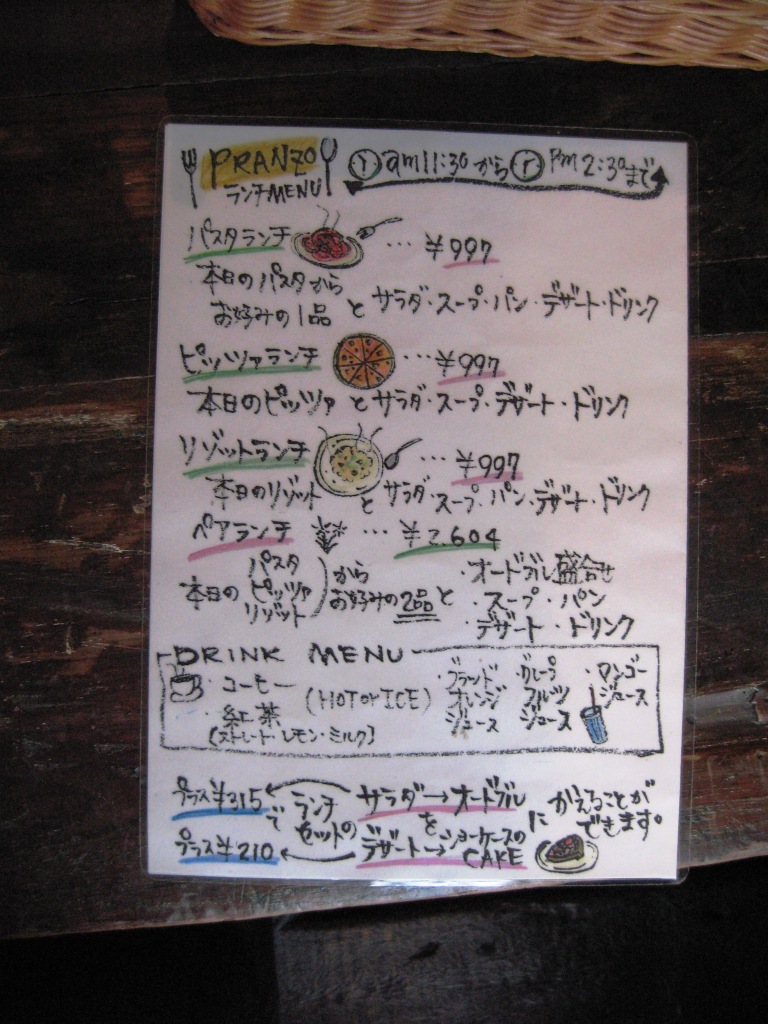 PRANZO am11:30からPM2:30まで
ランチMENU
パスタランチ … ¥997
本日のパスタから
お好みの1品 と サラダ・スープ・パン・デザート・ドリンク
ピッツァランチ … ¥997
本日のピッツァ と サラダ・スープ・デザート・ドリンク
リゾットランチ … ¥997
本日のリゾット と サラダ・スープ・パン・デザート・ドリンク
ペアランチ … ¥2.604
本日の パスタ ピッツァ リゾット から お好みの2品 と
・オードブル盛合せ
・スープ・パン
・デザート・ドリンク
DRINK MENU
・コーヒー
・紅茶
(HOT or ICE)
[ストレート・レモン・ミルク]
・ブラッド
オレンジ
ジュース
・グレープ
フルーツ
ジュース
・マンゴー
ジュース
プラス¥315
プラス¥210
で
ランチ
セットの
サラダ→オードブル
を
デザート→ショーケースの
CAKE
に
かえることが
できます。